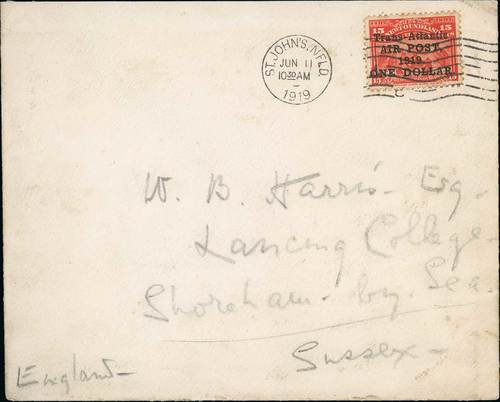 ST. JOHN'S, NFLD.
JUN 11
10 30 AM
1919
15 NEWFOUNDLAND 15
Trans-Atlantic
AIR POST,
1919.
ONE DOLLAR.
W. B. Harris- Esq.
Lancing College-
Shoreham-by-Sea.
Sussex-
England-